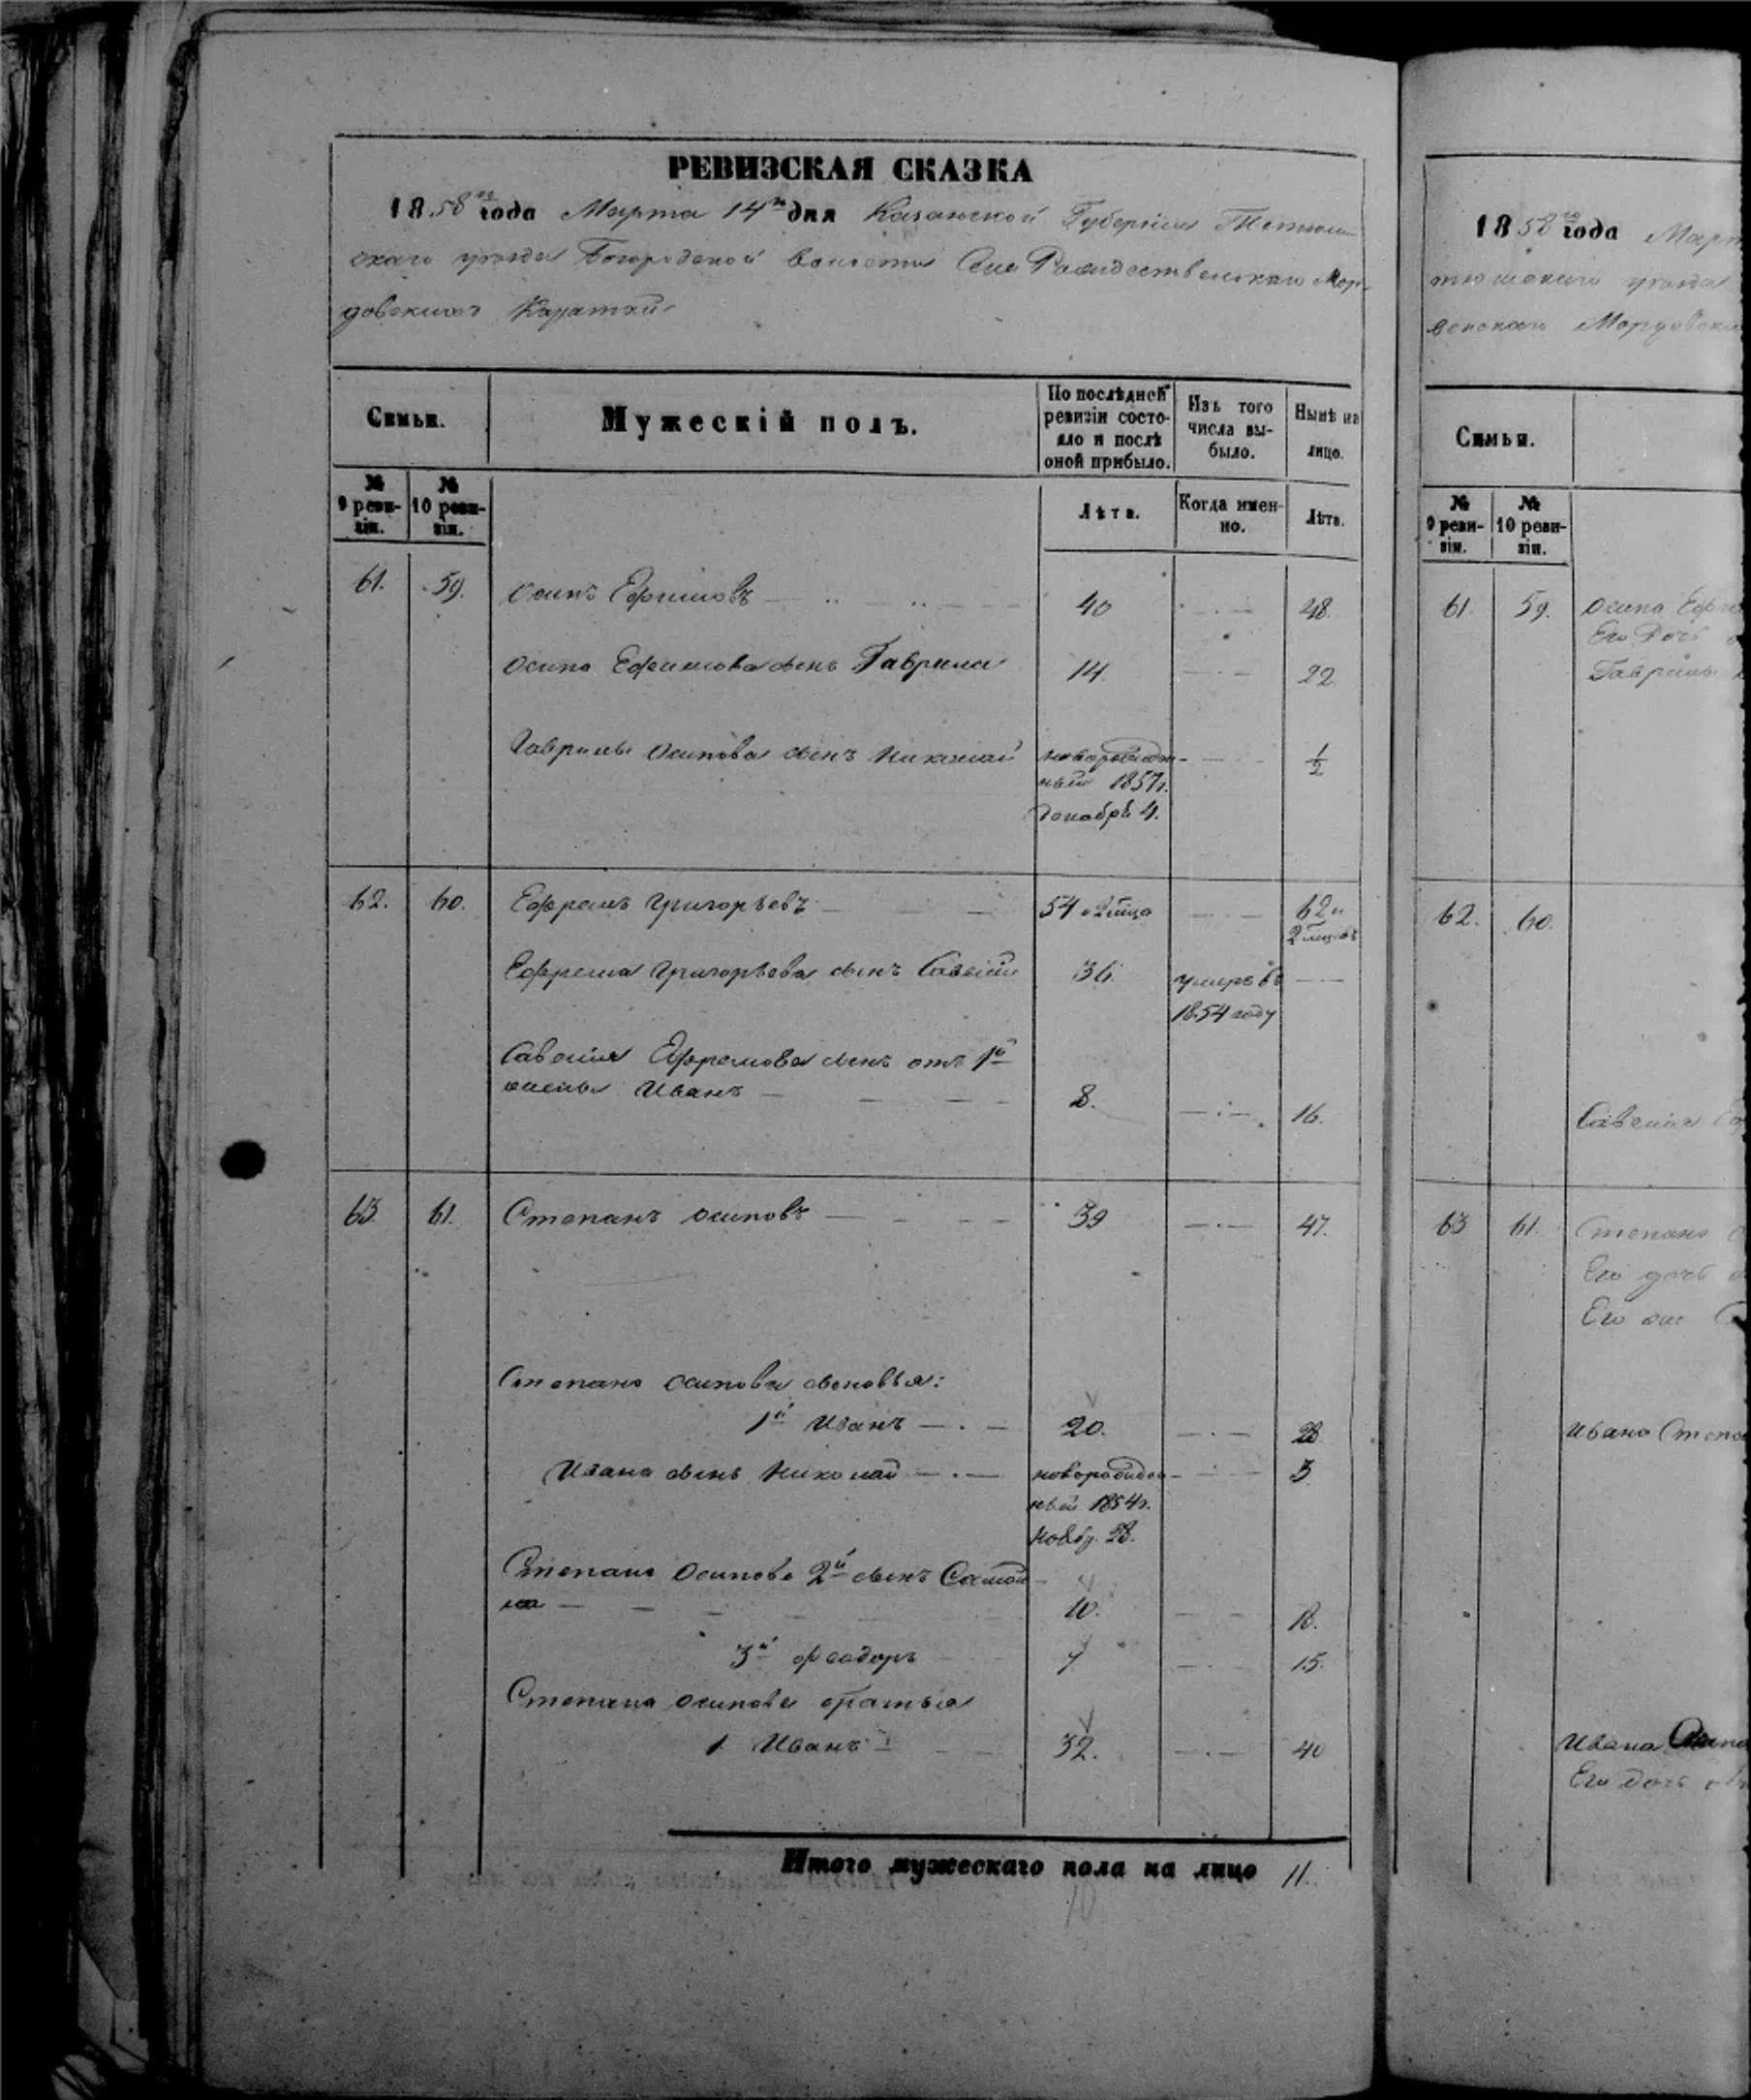 РЕВИЗСКАЯ СКАЗКА
1858го года Марта 14го дня Казанской Губерніи Тетюш
скаго уѣзда Богородской волости Села Рождественскаго Мор-
довскихъ Каратай
Семьи.
Мужескій полъ.
По послѣдней ревизіи состо-
яло и послѣ
оной прибыло.
Изъ того
числа вы-
было.
Нынѣ на
лицо.
№
9 реви-
зіи.
№
10 реви-
зіи.
Лѣта.
Когда имен-
но.
Лѣта.
61. 59. Осипъ Ефимовъ 40 48.
Осипа Ефимова сынъ Гаврила 14. 22.
Гаврилы Осипова сынъ Николай новорожден-
ный 1857г.
Декабря 4.
1/2
62. 60. Ефремъ Григорьевъ 54 62 и
Ефрема Григорьева сынъ Савелій 36. умеръ въ
1854 году
Савелія Ефремова сынъ отъ 1й
жены Иванъ 8. 16.
63. 61. Степанъ Осиповъ 39 47.
Степана Осипова сыновья:
1й Иванъ 20. 28
Ивана сынъ Николай новорожден-
ный 1854г.
Нояб. 28.
3.
Степана Осипова 2й сынъ Самой-
ла 10. 18.
3й Феодоръ 7 15.
Степана Осипова братья
1. Иванъ 32. 40
Итого мужескаго пола на лицо 11.
10
1858го года Март
тюшскаго уѣзда
венскаго Мордовски
Семьи.
№
9 реви-
зіи.
№
10 реви-
зіи.
61. 59. Осипа Ефи
Его дочь
Гаврилы
62. 60.
Савелія
63 61. Степана
Его дочь
Его
Ивана Степа
Ивана Осипо
Его дочь